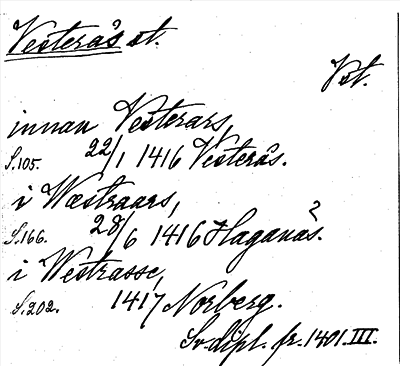 Vesterås st.
Vst.
innan Vesterars,
S.105. 22/1 1416 Vesterås.
i Wæstraars,
S.166. 28/6 1416 Haganäs?
i Westrasse,
S.202. 1417 Norberg.
Sv. dipl. fr. 1401. III.